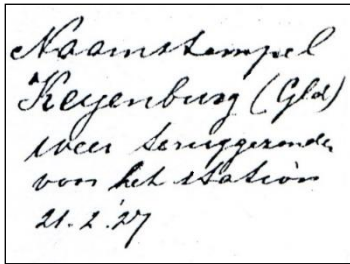 Naamstempel
Keyenburg (Gld)
weer teruggezonden
voor het station
21.2.'27